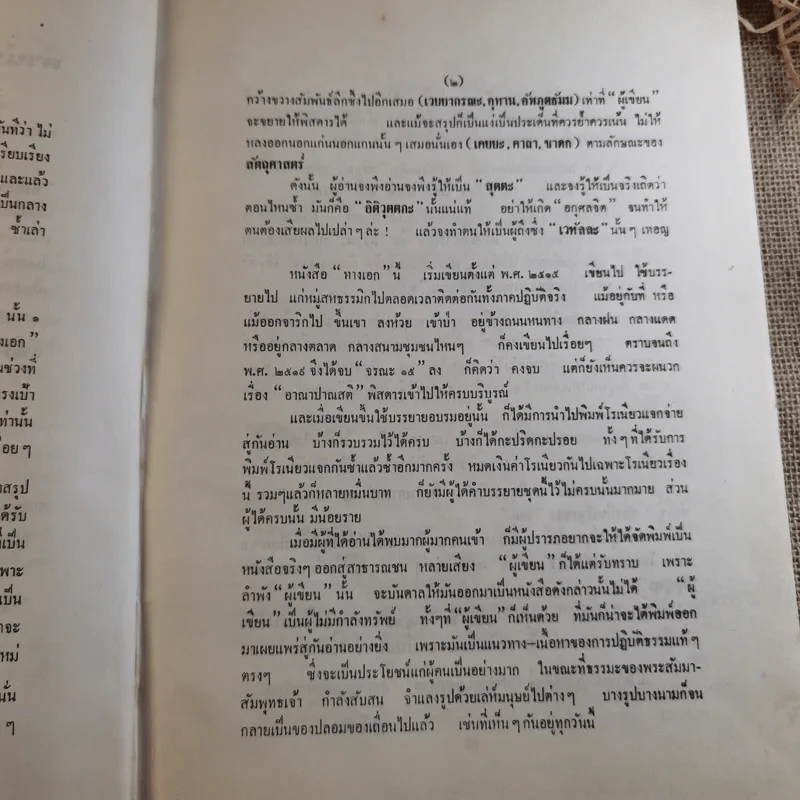 (๒)
กว้างขวางสัมพันธ์ลึกซึ้งไปอีกเสมอ (เวยยากรณะ, อุทาน, อัพภูตธัมม) เท่าที่ "ผู้เขียน"
จะขยายให้พิสดารได้ และแม้จะสรุปก็เป็นแง่เป็นประเด็นที่ควรย้ำควรเน้น ไม่ให้
หลงออกนอกแก่นนอกแกนนั้น ๆ เสมอนั่นเอง (เคยยะ, คาถา, ชาดก) ตามลักษณะของ
สัตถุศาสตร์
ดังนั้น ผู้อ่านจงพึงอ่านจงพึงรู้ให้เป็น "สุตตะ" และจงรู้ให้เป็นจริงเถิดว่า
ตอนไหนซ้ำ มันก็คือ "อิติวุตตกะ" นั้นแน่แท้ อย่าให้เกิด "อกุศลจิต" จนทำให้
ตนต้องเสียผลไปเปล่า ๆ ล่ะ ! แล้วจงทำตนให้เป็นผู้ถึงซึ่ง "เวทัลละ" นั้น ๆ เทอญ
หนังสือ "ทางเอก" นี้ เริ่มเขียนตั้งแต่ พ.ศ. ๒๕๑๕ เขียนไป ใช้บรร-
ยายไป แก่หมู่สหธรรมิกไปตลอดเวลาติดต่อกันทั้งภาคปฏิบัติจริง แม้อยู่กับที่ หรือ
แม้ออกจาริกไป ขึ้นเขา ลงห้วย เข้าป่า อยู่ข้างถนนหนทาง กลางฝน กลางแดด
หรืออยู่กลางตลาด กลางสนามชุมชนไหนๆ ก็คงเขียนไปเรื่อยๆ ตราบจนถึง
พ.ศ. ๒๕๑๙ จึงได้จบ "จรณะ ๑๕" ลง ก็คิดว่า คงจบ แต่ก็ยังเห็นควรจะผนวก
เรื่อง "อาณาปาณสติ" พิสดารเข้าไปให้ครบบริบูรณ์
และเมื่อเขียนขึ้นใช้บรรยายอบรมอยู่นั้น ก็ได้มีการนำไปพิมพ์โรเนียวแจกจ่าย
สู่กันอ่าน บ้างก็รวบรวมไว้ได้ครบ บ้างก็ได้กะปริดกะปรอย ทั้งๆที่ได้รับการ
พิมพ์โรเนียวแจกกันซ้ำแล้วซ้ำอีกมากครั้ง หมดเงินค่าโรเนียวกันไปเฉพาะโรเนียวเรื่อง
นี้ รวมๆแล้วก็หลายหมื่นบาท ก็ยังมีผู้ได้คำบรรยายชุดนี้ไว้ไม่ครบนั้นมากมาย ส่วน
ผู้ได้ครบนั้น มีน้อยราย
เมื่อมีผู้ที่ได้อ่านได้พบมากผู้มากคนเข้า ก็มีผู้ปรารภอยากจะให้ได้จัดพิมพ์เป็น
หนังสือจริงๆ ออกสู่สาธารณชน หลายเสียง "ผู้เขียน" ก็ได้แต่รับทราบ เพราะ
ลำพัง "ผู้เขียน" นั้น จะบันดาลให้มันออกมาเป็นหนังสือดังกล่าวนั้นไม่ได้ "ผู้
เขียน" เป็นผู้ไม่มีกำลังทรัพย์ ทั้งๆที่ "ผู้เขียน" ก็เห็นด้วย ที่มันก็น่าจะได้พิมพ์ออก
มาเผยแพร่สู่กันอ่านอย่างยิ่ง เพราะมันเป็นแนวทาง-เนื้อหาของการปฏิบัติธรรมแท้ๆ
ตรงๆ ซึ่งจะเป็นประโยชน์แก่ผู้คนเป็นอย่างมาก ในขณะที่ธรรมะของพระสัมมา-
สัมพุทธเจ้า กำลังสับสน จำแลงรูปด้วยเล่ห์มนุษย์ไปต่างๆ บางรูปบางนามก็จน
กลายเป็นของปลอมของเถื่อนไปแล้ว เช่นที่เห็น ๆ กันอยู่ทุกวันนี้